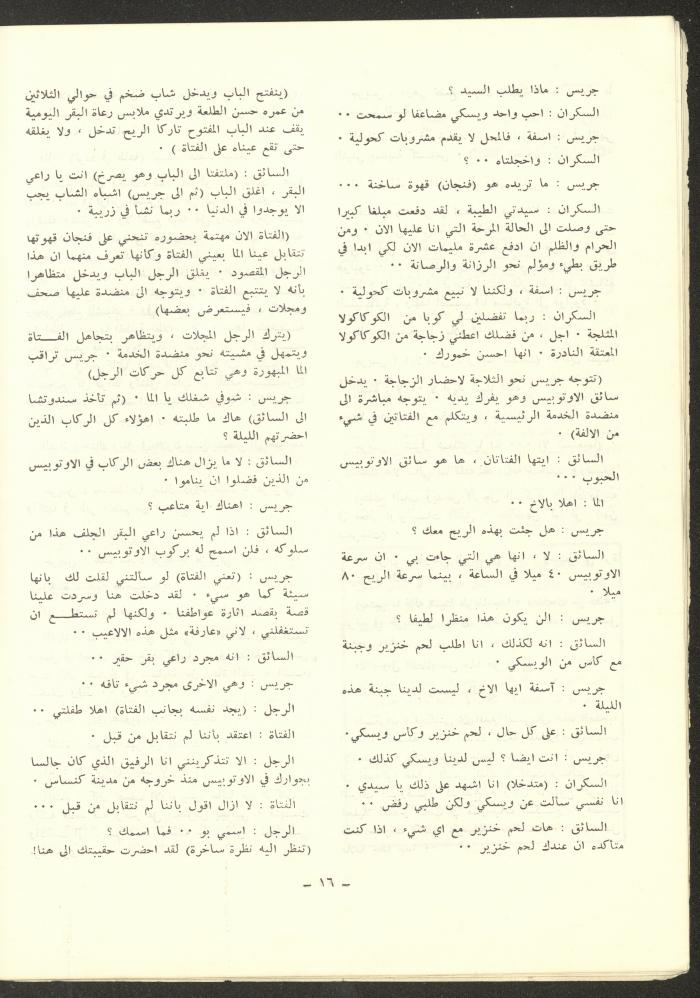 جريس : ماذا يطلب السيد ؟
السكران : احب واحد ويسكي مضاعفا لو سمحت ٠٠
جريس : اسفة ، فالمحل لا يقدم مشروبات كحولية ٠
السكران : واخجلتاه ٠٠ ؟
جريس : ما تريده هو (فنجان) قهوة ساخنة ٠٠٠
السكران : سيدتي الطيبة ، لقد دفعت مبلغا كبيرا
حتى وصلت الى الحالة المرحة التي انا عليها الان ٠ ومن
الحرام والظلم ان ادفع عشرة مليمات الان لكي ابدا في
طريق بطيء ومؤلم نحو الرزانة والرصانة ٠٠
جريس : اسفة ، ولكننا لا نبيع مشروبات كحولية ٠
السكران : ربما تفضلين لي كوبا من الكوكاكولا
المثلجة ٠ اجل ، من فضلك اعطني زجاجة من الكوكاكولا
المعتقة النادرة ٠ انها احسن خمورك ٠
(تتوجه جريس نحو الثلاجة لاحضار الزجاجة ٠ يدخل
سائق الاوتوبيس وهو يفرك يديه ٠ يتوجه مباشرة الى
منضدة الخدمة الرئيسية ، ويتكلم مع الفتاتين في شيء
من الالفة)
السائق : ايتها الفتاتان ، ها هو سائق الاوتوبيس
الحبوب ٠٠٠
الما : اهلا بالاخ ٠٠
جريس : هل جئت بهذه الريح معك ؟
السائق : لا ، انها هي التي جاءت بي ٠ ان سرعة
الاوتوبيس ٤٠ ميلا في الساعة ، بينما سرعة الريح ٨٠
ميلا ٠
جريس : الن يكون هذا منظرا لطيفا ؟
السائق : انه لكذلك ، انا اطلب لحم خنزير وجبنة
مع كاس من الويسكي ٠
جريس : آسفة ايها الاخ ، ليست لدينا جبنة هذه
الليلة ٠
السائق : على كل حال ، لحم خنزير وكاس ويسكي٠
جريس : انت ايضا ؟ ليس لدينا ويسكي كذلك ٠
السكران : (متدخلا) انا اشهد على ذلك يا سيدي ٠
انا نفسي سالت عن ويسكي ولكن طلبي رفض ٠٠
السائق : هات لحم خنزير مع اي شيء ، اذا كنت
متاكده ان عندك لحم خنزير ٠٠
(ينفتح الباب ويدخل شاب ضخم في حوالي الثلاثين
من عمره حسن الطلعة ويرتدي ملابس رعاة البقر اليومية
يقف عند الباب المفتوح تاركا الريح تدخل ، ولا يغلقه
حتى تقع عيناه على الفتاة ) ٠
السائق : (ملتفتا الى الباب وهو يصرخ) انت يا راعي
البقر ، اغلق الباب (ثم الى جريس) اشباه الشاب يجب
الا يوجدوا في الدنيا ٠٠ ربما نشأ في زريبة ٠
(الفتاة الان مهتمة بحضوره تنحني على فنجان قهوتها
تتقابل عينا الما بعيني الفتاة وكانها تعرف منهما ان هذا
الرجل المقصود ٠ يغلق الرجل الباب ويدخل متظاهرا
بانه لا يتتبع الفتاة ٠ ويتوجه الى منضدة عليها صحف
ومجلات ، فيستعرض بعضها)
(يترك الرجل المجلات ، ويتظاهر بتجاهل الفـــتاة
ويتمهل في مشيته نحو منضدة الخدمة ٠ جريس تراقب
الما المبهورة وهي تتابع كل حركات الرجل)
جريس : شوفي شغلك يا الما ٠ (ثم تأخذ سندوتشا
الى السائق) هاك ما طلبته ٠ اهؤلاء كل الركاب الذين
احضرتهم الليلة ؟
السائق : لا ما يزال هناك بعض الركاب في الاوتوبيس
من الذين فضلوا ان يناموا ٠
جريس : اهناك اية متاعب ؟
السائق : اذا لم يحسن راعي البقر الجلف هذا من
سلوكه ، فلن اسمح له بركوب الاوتوبيس ٠٠
جريس : (تعني الفتاة) لو سالتني لقلت لك بانها
سيئة كما هو سيء ٠ لقد دخلت هنا وسردت علينا
قصة بقصد اثارة عواطفنا ٠ ولكنها لم تستطـــع ان
تستغفلني ، لاني «عارفة» مثل هذه الالاعيب ٠٠
السائق : انه مجرد راعي بقر حقير ٠٠
جريس : وهي الاخرى مجرد شيء تافه ٠٠
الرجل : (يجد نفسه بجانب الفتاة) اهلا طفلتي ٠٠
الفتاة : اعتقد باننا لم نتقابل من قبل ٠
الرجل : الا تتذكرينني انا الرفيق الذي كان جالسا
بجوارك في الاوتوبيس منذ خروجه من مدينة كنساس ٠
الفتاة : لا ازال اقول باننا لم نتقابل من قبل ٠٠٠
الرجل : اسمي بو ٠٠ فما اسمك ؟
(تنظر اليه نظرة ساخرة) لقد احضرت حقيبتك الى هنا!
– ١٦ –